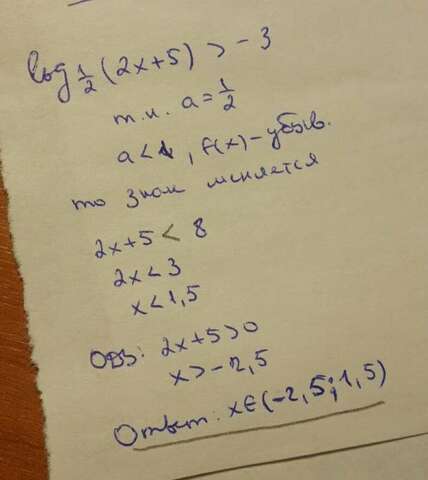 log 1/2 (2x+5) > -3
т.к. a = 1/2
a < 1, f(x) - убыв.
то знак меняется
2x+5 < 8
2x < 3
x < 1,5
ОДЗ: 2x+5 > 0
x > -2,5
Ответ: x∈(-2,5; 1,5)